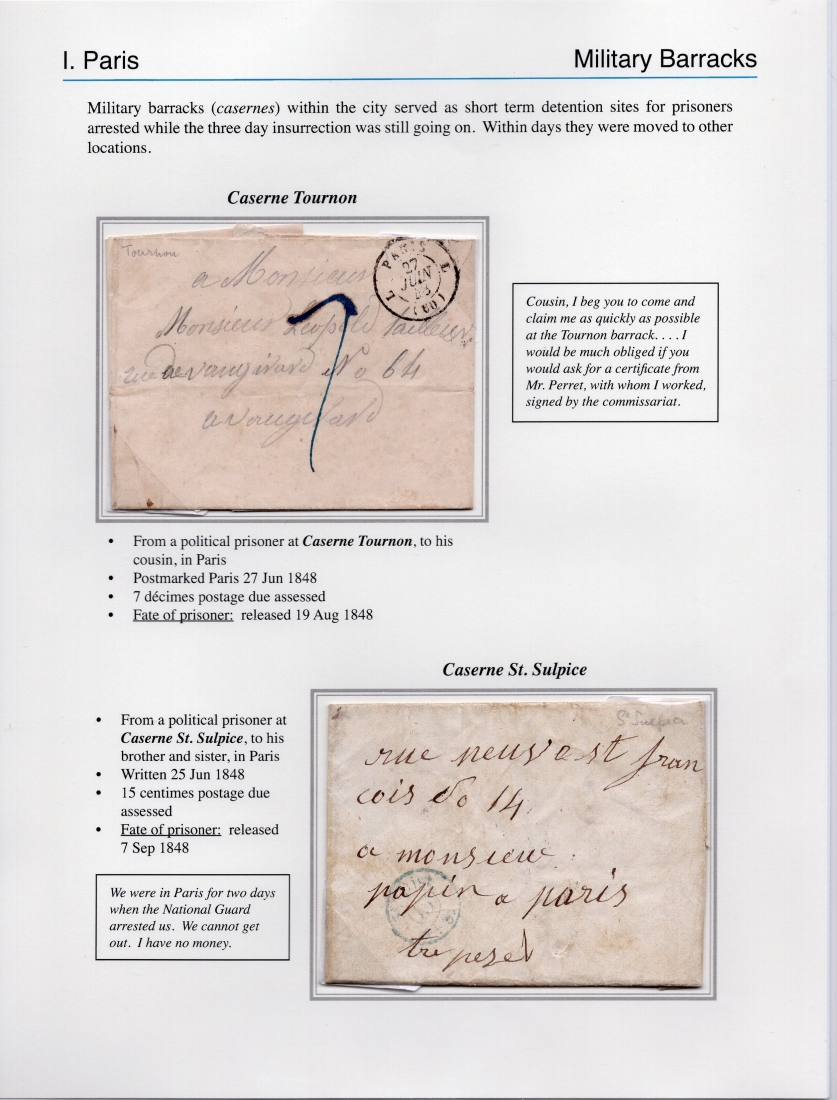 I. Paris
Military Barracks
Military barracks (casernes) within the city served as short term detention sites for prisoners
arrested while the three day insurrection was still going on. Within days they were moved to other
locations.
Caserne Tournon
Tournon
PARIS
L L
27
JUIN
(60)
a Monsieur
Monsieur Leopold
rue de vaugirard No 64
a vaugirard
7
Cousin, I beg you to come and
claim me as quickly as possible
at the Tournon barrack. . . . I
would be much obliged if you
would ask for a certificate from
Mr. Perret, with whom I worked,
signed by the commissariat.
• From a political prisoner at Caserne Tournon, to his
cousin, in Paris
• Postmarked Paris 27 Jun 1848
• 7 décimes postage due assessed
• Fate of prisoner: released 19 Aug 1848
Caserne St. Sulpice
• From a political prisoner at
Caserne St. Sulpice, to his
brother and sister, in Paris
• Written 25 Jun 1848
• 15 centimes postage due
assessed
• Fate of prisoner: released
7 Sep 1848
We were in Paris for two days
when the National Guard
arrested us. We cannot get
out. I have no money.
St Sulpice
rue neuve st fran
cois No 14
a monsieur
papin a paris